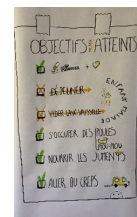 OBJECTIFS ATTEINTS
DÉJEUNER
VIDER LAVE-VAISSELLE
S'OCCUPER DES POULES
NOURRIR LES JUMENTS
ALLER AU CREPS
ENFANT MALADE